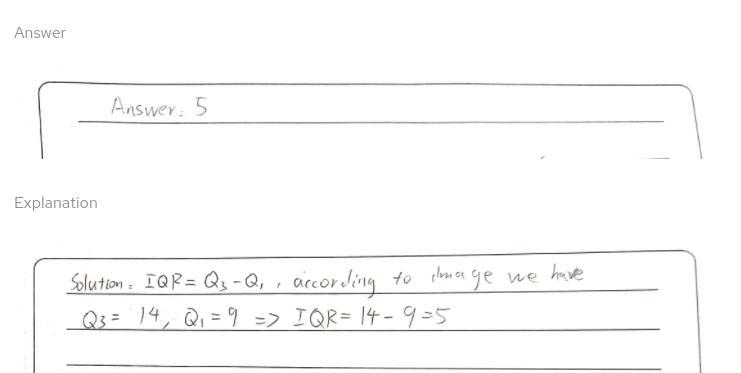 Answer
Answer: 5
Explanation
Solution: IQR = Q₃ - Q₁, according to image we have
Q₃ = 14, Q₁ = 9 => IQR = 14 - 9 = 5